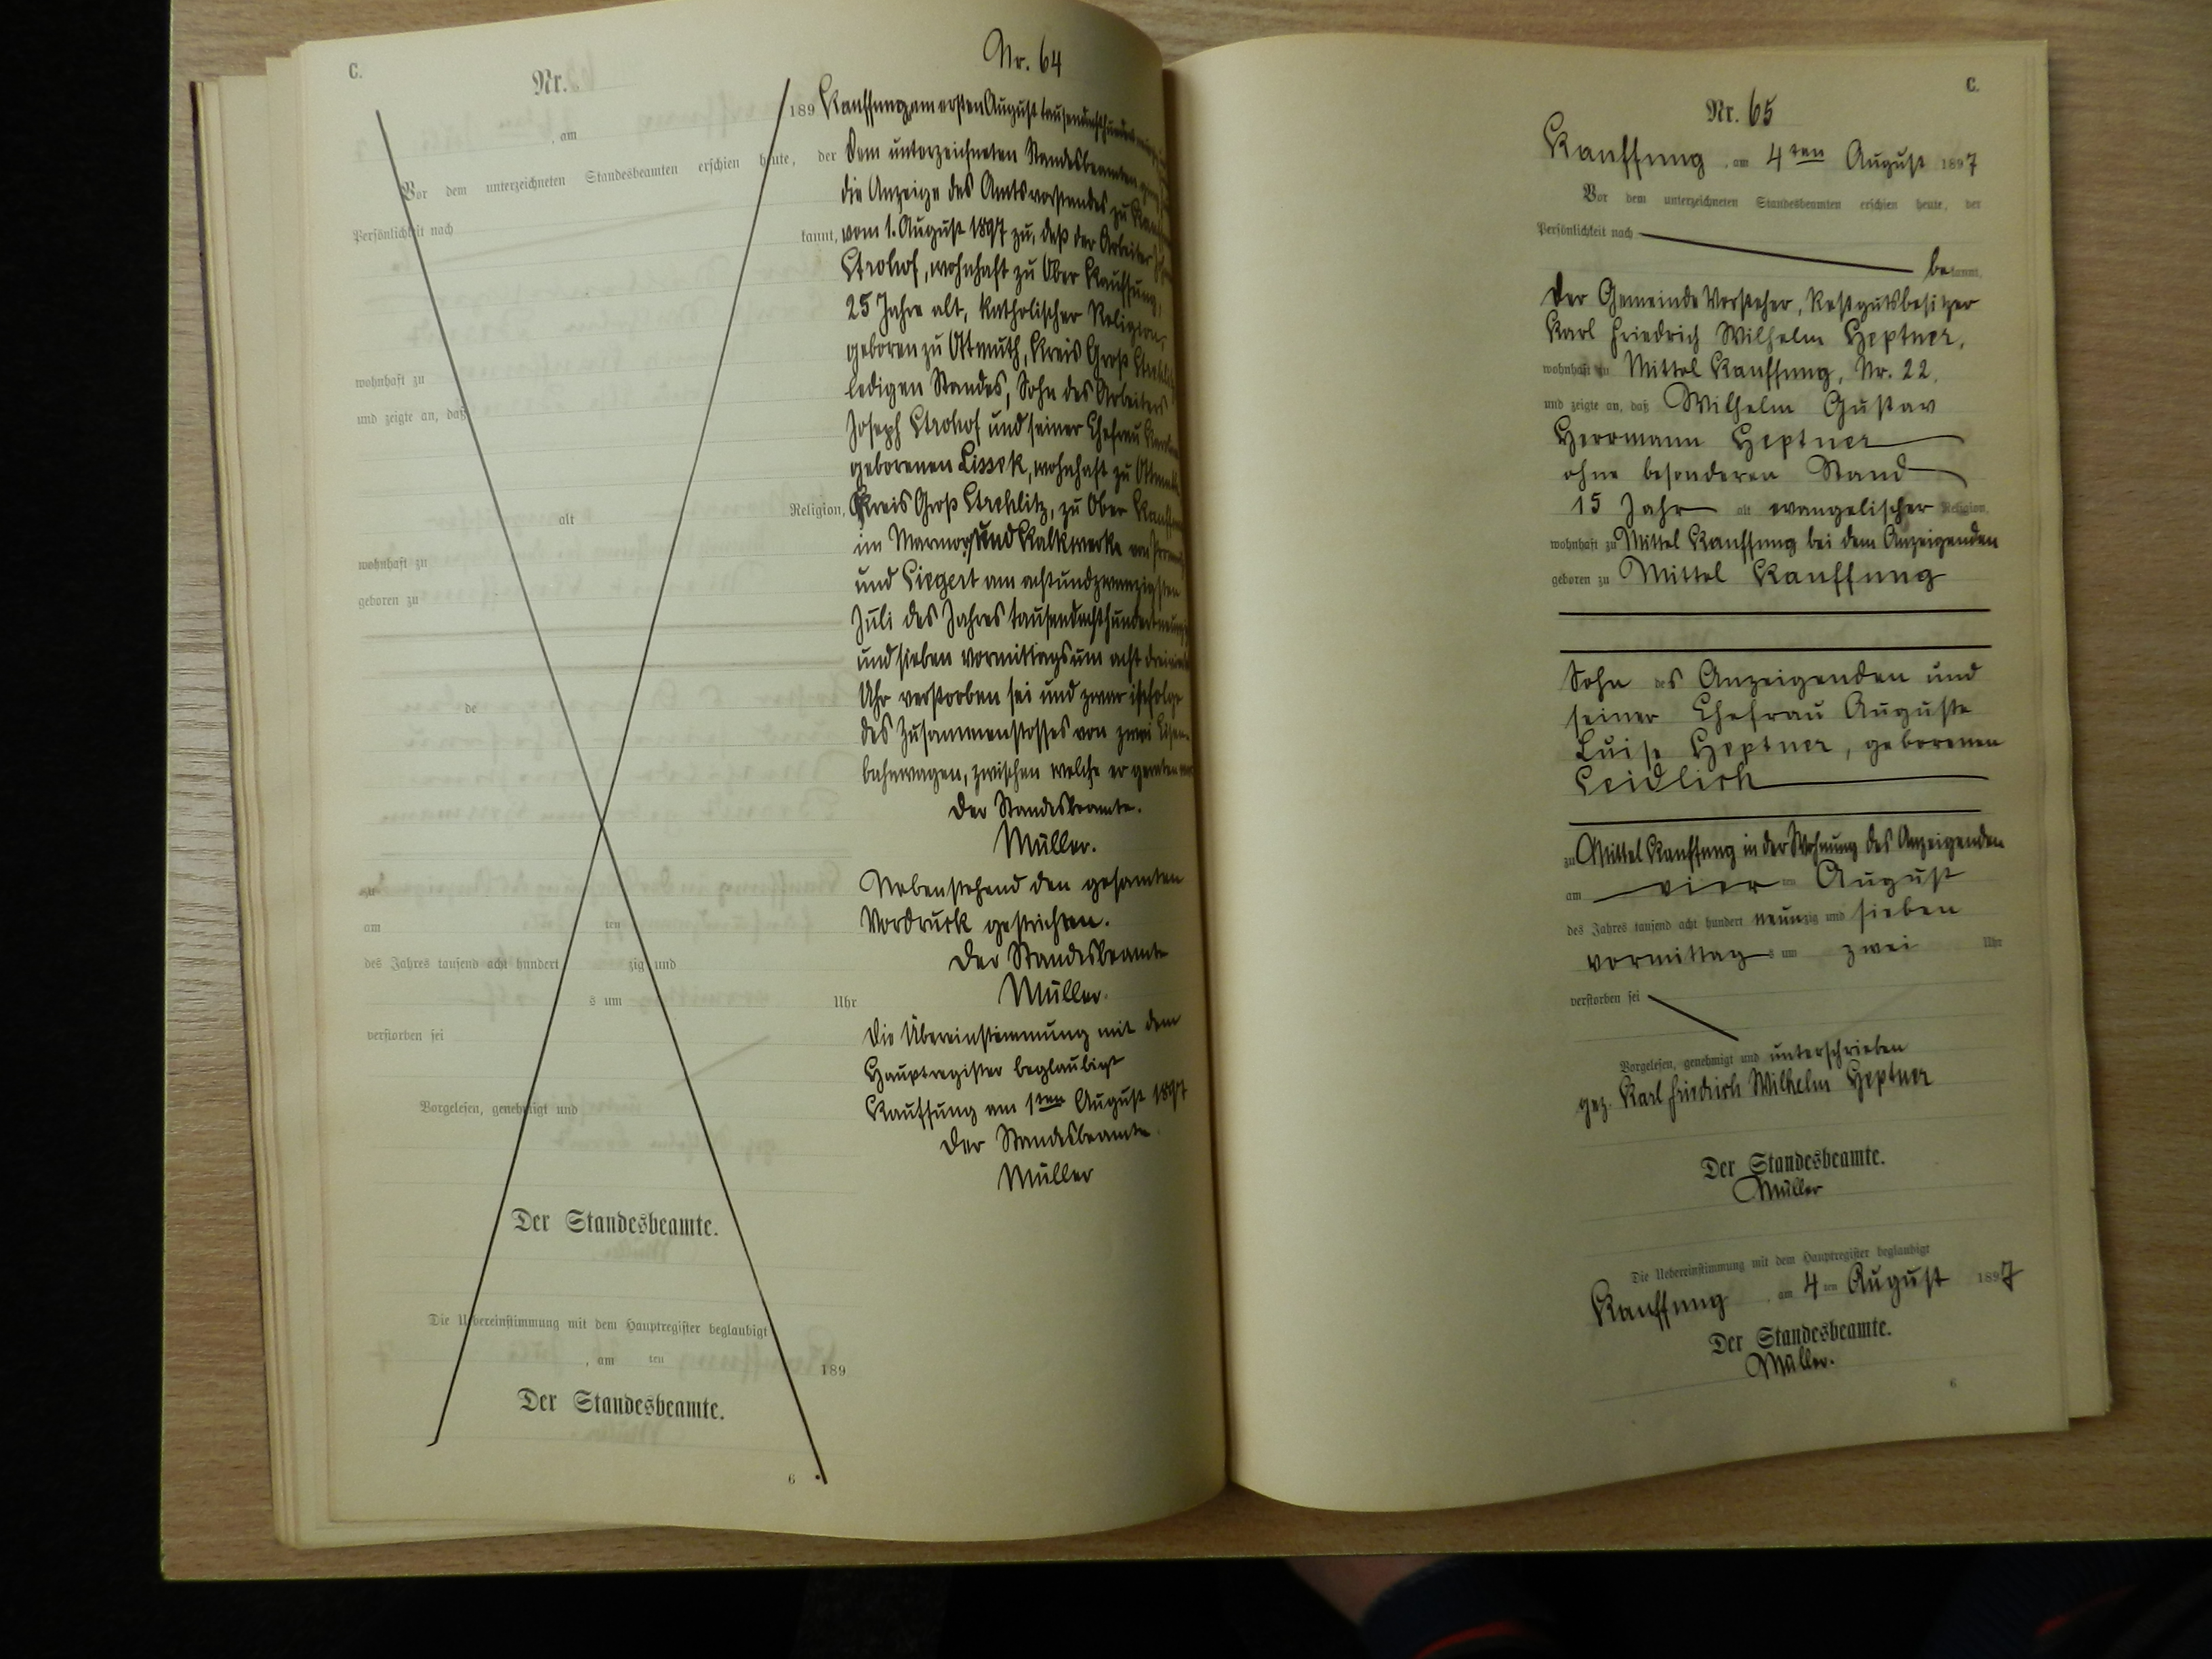 C.
Nr.
, am 189
Vor dem unterzeichneten Standesbeamten erschien heute, der
Persönlichkeit nach
kannt,
wohnhaft zu
und zeigte an, daß
alt Religion,
wohnhaft zu
geboren zu
de
zu
am ten
des Jahres tausend acht hundert zig und
s um Uhr
verstorben sei
Vorgelesen, genehmigt und
Der Standesbeamte.
Die Uebereinstimmung mit dem Hauptregister beglaubigt
, am ten 189
Der Standesbeamte.
6
Nr. 64
Kauffung, am ersten August
Dem unterzeichneten Standesbeamten
die Anzeige des Amtsvorstandes zu
vom 1. August 1897 zu, daß der Arbeiter
Strokof, wohnhaft zu Ober Kauffung,
25 Jahre alt, katholischer Religion,
geboren zu Ottmuth, Kreis Groß
ledigen Standes, Sohn des Arbeiters
Joseph Strokof und seiner Ehefrau
geborenen Lissek, wohnhaft zu
Kreis Groß Strehlitz, zu Ober
im Marmor und Kalkwerke von
und Siegert am achtundzwanzigsten
Juli des Jahres tausendachthundert
und sieben vormittags um acht
Uhr verstorben sei und zwar infolge
des Zusammenstosses von zwei Eisen-
bahnwagen, zwischen welche er geraten
Der Standesbeamte.
Müller.
Nebenstehend den gesamten
Vordruck gestrichen.
Der Standesbeamte
Müller.
Die Übereinstimmung mit dem
Hauptregister beglaubigt
Kauffung am 1ten August 1897
Der Standesbeamte.
Müller
C.
Nr. 65
Kauffung, am 4ten August 1897
Vor dem unterzeichneten Standesbeamten erschien heute, der
Persönlichkeit nach
bekannt,
der Gemeinde Vorsteher, Restgutsbesitzer
Karl Friedrich Wilhelm Heptner,
wohnhaft zu Mittel Kauffung, Nr. 22,
und zeigte an, daß Wilhelm Gustav
Herrmann Heptner
ohne besonderen Stand
15 Jahr alt evangelischer Religion,
wohnhaft zu Mittel Kauffung bei dem Anzeigenden
geboren zu Mittel Kauffung
Sohn des Anzeigenden und
seiner Ehefrau Auguste
Luise Heptner, geborenen
Seidlich
zu Mittel Kauffung in der Wohnung des Anzeigenden
am vier ten August
des Jahres tausend acht hundert neunzig und sieben
vormittag s um zwei Uhr
verstorben sei
Vorgelesen, genehmigt und unterschrieben
gez. Karl Friedrich Wilhelm Heptner
Der Standesbeamte.
Müller
Die Uebereinstimmung mit dem Hauptregister beglaubigt
Kauffung, am 4 ten August 1897
Der Standesbeamte.
Müller.
6